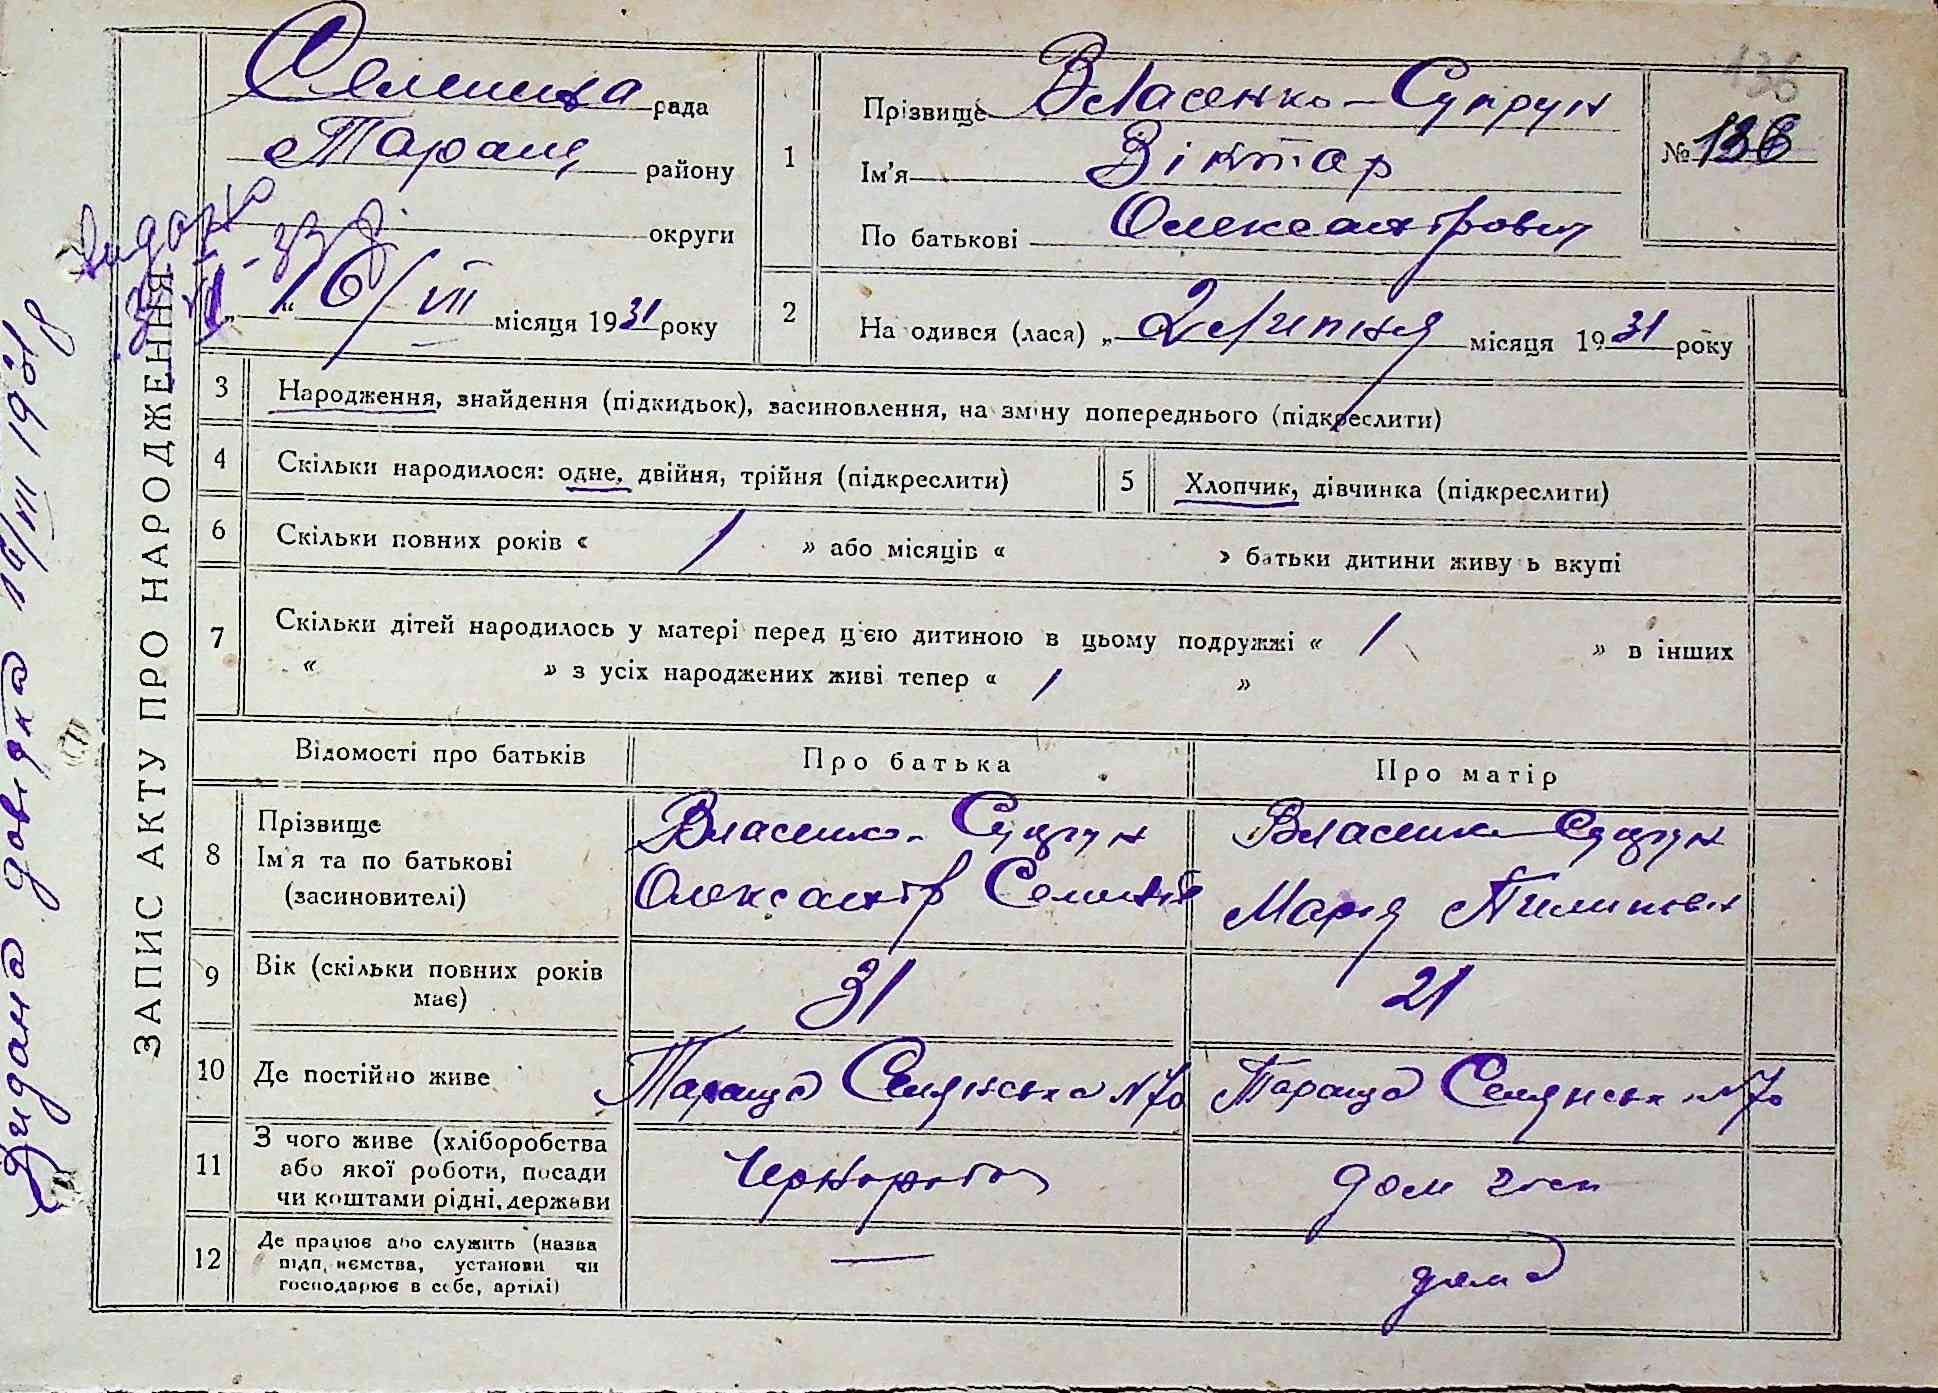 ЗАПИС АКТУ ПРО НАРОДЖЕННЯ
Видана довідка 16/VII 1931 р
Селищна рада
Таращ району
округи
16/VII місяця 1931 року
1
Прізвище Власенко-Супрун
Ім'я Віктар
По батькові Олександрович
№ 136
136
2
На одився (лася) „ 2 Липня місяця 1931 року
3 Народження, знайдення (підкидьок), засиновлення, на зміну попереднього (підкреслити)
4 Скільки народилося: одне, двійня, трійня (підкреслити)
5 Хлопчик, дівчинка (підкреслити)
6 Скільки повних років « 1 » або місяців « » батьки дитини живу ь вкупі
7 Скільки дітей народилось у матері перед цією дитиною в цьому подружжі « 1 » в інших
« » з усіх народжених живі тепер « 1 »
Відомості про батьків Про батька Про матір
8 Прізвище
Ім'я та по батькові
(засиновителі)
Власенко-Супрун
Олександр
Власенко-Супрун
Марія Пилиповн
9 Вік (скільки повних років
має)
31 21
10 Де постійно живе Тараща Селянська N 70 Тараща Селянська N 70
11 З чого живе (хліборобства
або якої роботи, посади
чи коштами рідні, держави
Чернороб дом госп
12 Де працює або служить (назва
підп иємства, установи чи
господарює в себе, артілі)
— дома